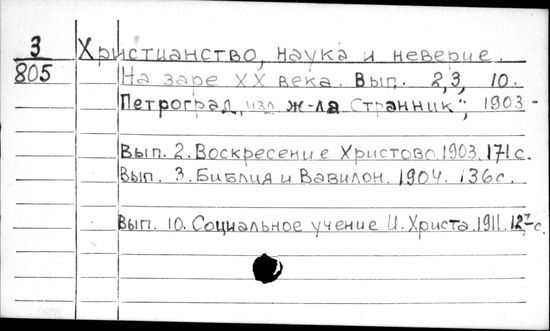 3 Христианство, наука и неверие.
805 На заре XX века. Вып. 2,3, 10.
Петроград, изд ж-ла Странник", 1903 -
Вып. 2. Воскресение Христово. 1903. 171 с.
Вып. 3. Библия и Вавилон. 1904. 136 с.
Вып. 10. Социальное учение И. Христа. 1911. 127 с.